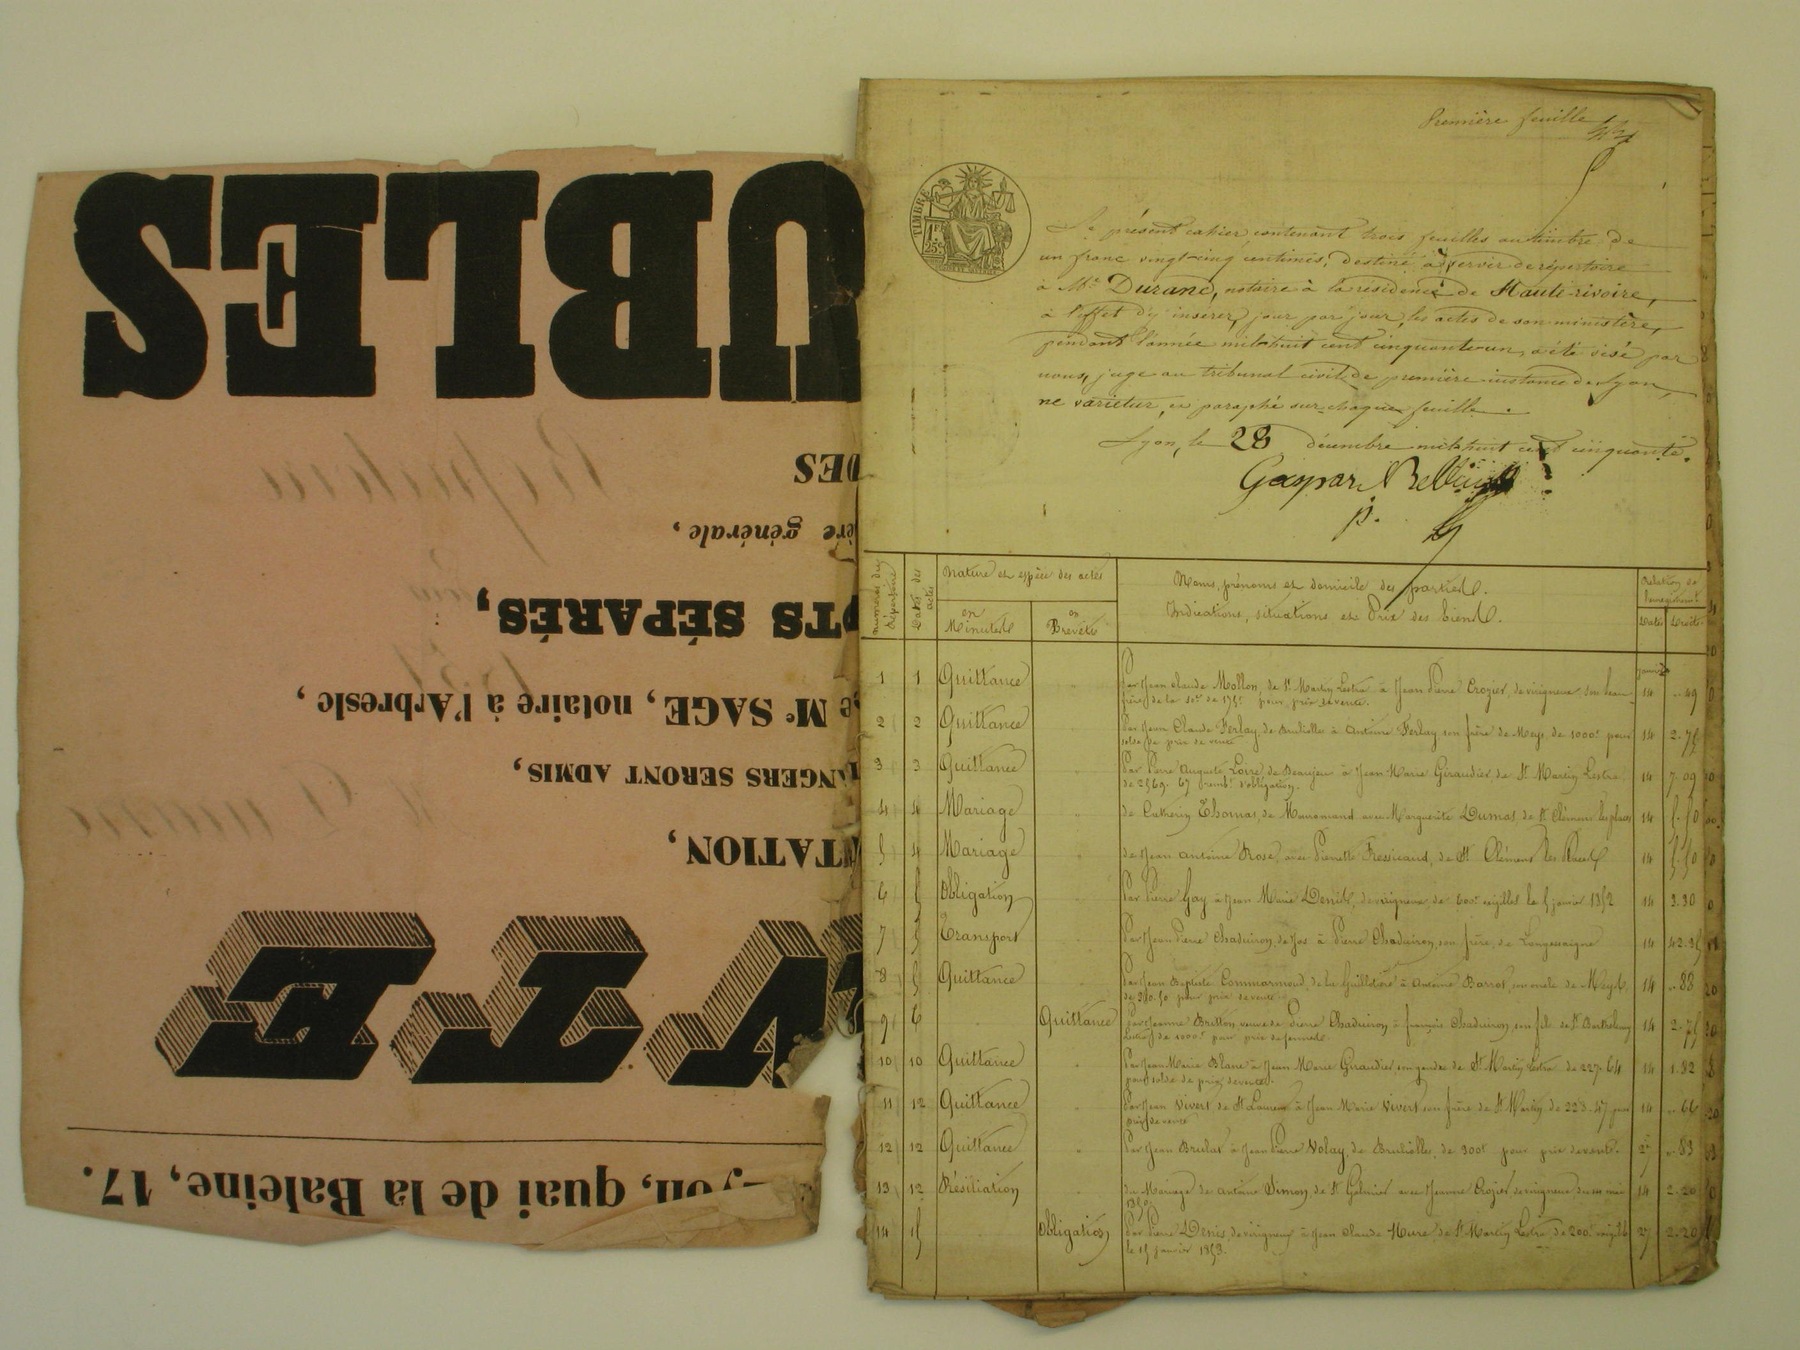 UBLES
DES
ère générale,
TS SÉPARÉS,
e Me SAGE, notaire à l'Arbresle,
NGERS SERONT ADMIS,
TATION,
ITE
Lyon, quai de la Baleine, 17.
Répertoire
1851
Première feuille
TIMBRE
1 FR
25c
Le présent cahier, contenant trois feuilles au timbre de
un franc vingt-cinq centimes, destiné à servir de répertoire
à Me Durand, notaire à la résidence de Haute-rivoire,
à l'effet d'y insérer, jour par jour, les actes de son ministère,
pendant l'année mil huit cent cinquante-un, a été visé par
nous, juge au tribunal civil de première instance de Lyon,
ne varietur, et paraphé sur chaque feuille.
Lyon, le 28 décembre mil huit cent cinquante.
Gaspar
numéros du répertoire
Dates des actes
Nature et espèce des actes
en Minutes
en Brevets
Noms, prénoms et domicile des parties.
Indications, situations et Prix des biens.
Relation de l'enregistrement
Dates
Droits
janvier
1 1 Quittance Par Jean Claude Mollon, de St Martin Lestra à Jean Pierre Crozier, de virigneux son beau- 14 " 49
frère de la so. de 175f pour prix de vente.
2 2 Quittance Par Jean Claude Ferlay, de Brullioles à Antoine Ferlay, son frère de Meys, de 1000f pour 14 2.75
solde de prix de vente
3 3 Quittance Par Pierre Auguste Loire de Beaujeu à Jean Marie Giraudier de St Martin Lestra 14 7.09
de 2569.67 remb.t d'obligation.
4 4 Mariage de Thomas, de avec Marguerite Dumas, de St Clément les places 14 5.50
5 4 Mariage de Jean Antoine Rose, avec Pierrette de St Clément les places 14 5.50
6 5 Obligation Par Pierre Gay à Jean Marie Denis, de virigneux, de 600f exigible le 5 janvier 1852 14 3.30
7 5 Transport Par Jean Pierre Chadiron, de à Pierre Chadiron, son frère, de Longessaigne 14 42.35
8 5 Quittance Par Jean Baptiste Commarmond, de la Guillotière à Antoine Barrot, son oncle de Meys, 14 " 88
de 310.50 pour prix de vente
9 6 Quittance par Jeanne Britton veuve de Pierre Chadiron à françois Chadiron, son fils de St Barthélemy 14 2.75
Lestra, de 1000f pour prix de
10 10 Quittance Par Jean Marie Blanc à Jean Marie Giraudier, son gendre de St Martin Lestra de 227.64 14 1.82
pour solde de prix de vente.
11 12 Quittance Par Jean Vivert de St Laurent à Jean Marie Vivert, son frère de St Martin, de 223.47 pour 14 " 66
prix de vente
12 12 Quittance Par Jean Brulat à Jean Pierre Volay, de Brullioles, de 300f pour prix de vente. 27 " 83
13 12 Résiliation du Mariage de Antoine Simon de St Galmier avec Jeanne Crozier de virigneux du 14 2.20
1850
14 15 Obligation Par Pierre Denis, de virigneux à Jean Claude Mure, de St Martin Lestra de 200f exigible 27 2.20
le 15 janvier 1853.